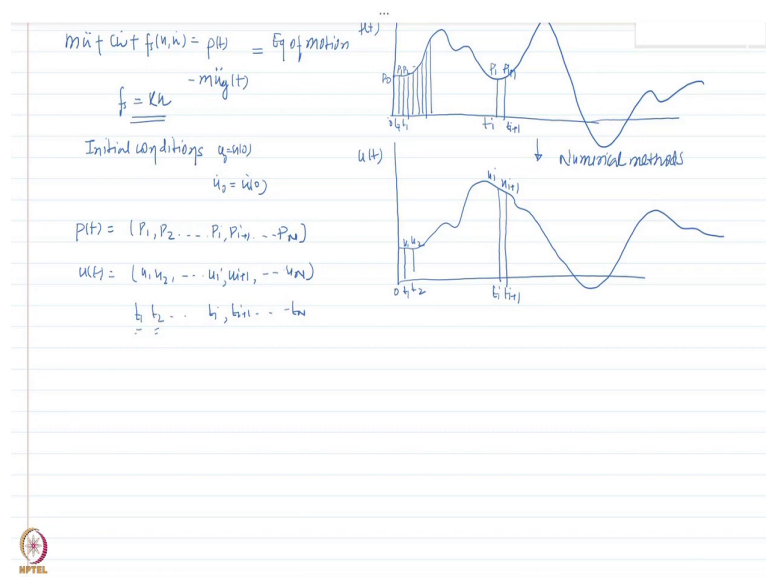 ...
mü + cu̇ + fs(u, u̇) = p(t) = Eq of motion
-müg(t)
fs = Ku
Initial conditions u0 = u(0)
u̇0 = u̇(0)
p(t) = (P1, P2 .... Pi, Pi+1, ... PN)
u(t) = (u1 u2, ... ui, ui+1, --- uN)
t1 t2 ... ti, ti+1 ... tN
p(t)
P0 P1 P2 Pi Pi+1
0 t1 ti ti+1
Numerical methods
u(t)
u1 u2 ui ui+1
0 t1 t2 ti ti+1
NPTEL